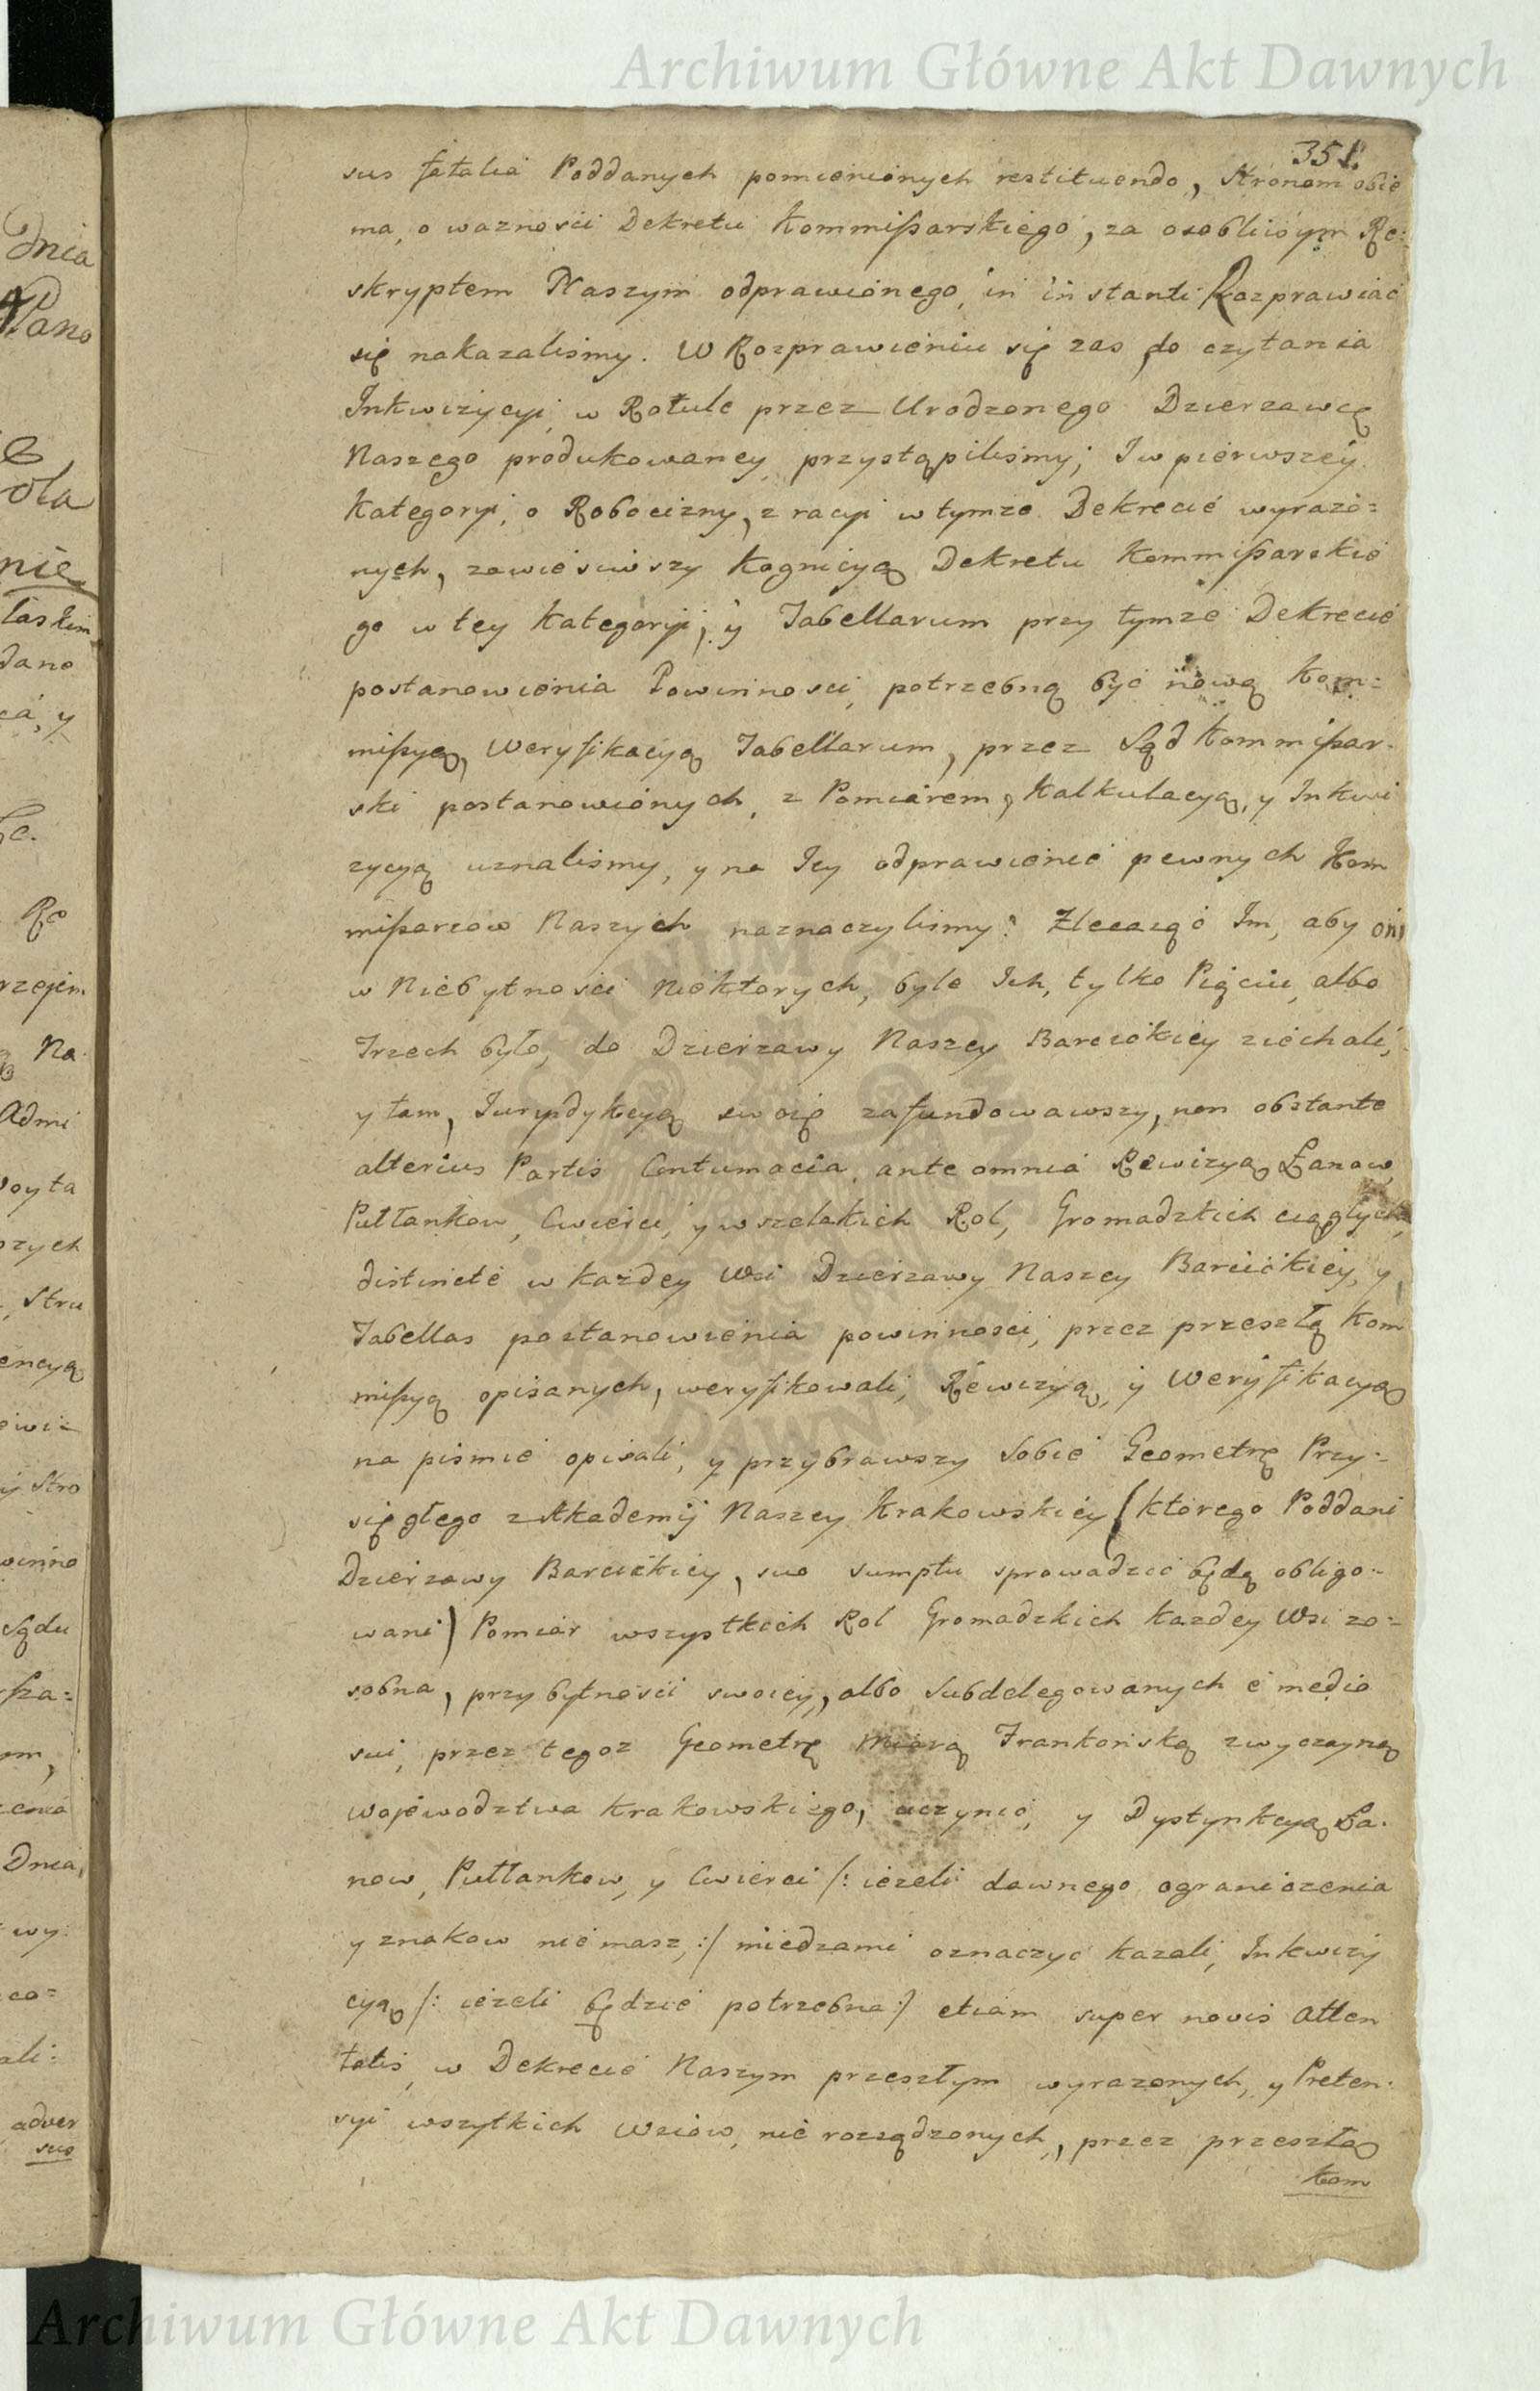 Archiwum Główne Akt Dawnych
351.
sus fatalia Poddanych pomienionych restituendo, Stronom obie
ma, o waznosci Dekretu Kommißarskiego, za osobliwym Re=
skryptem Naszym odprawionego, in instanti Rozprawiać
się nakazalismy. W Rozprawieniu się zas, do czytania
Inkwizycyi, w Rotule przez Urodzonego Dzierzawcę
Naszego produkowaney, przystąpilismy; I w pierwszey
Kategoryi, o Robocizny, z racyi w tymze Dekrecie wyrazo=
nych, zawiesiwszy Kognicyą Dekretu Kommißarskie
go w tey Kategoryi, y Tabellarum przy tymze Dekrecie
postanowienia Powinnosci, potrzebną być nową Kom=
mißyą, Weryfikacyą Tabellarum, przez Sąd Kommißar-
ski postanowionych, z Pomiarem, Kalkulacyą, y Inkwi
zycyą uznalismy, y na Jey odprawienie pewnych Kom
mißarzow Naszych naznaczylismy: Zlecaiąc Im, aby oni
w Niebytnosci Niektorych, byle Ich, tylko Pięciu, albo
Trzech było, do Dzierzawy Naszey Barcickiey ziechali,
y tam, Jurysdykcyą swoię zafundowawszy, non obstante
alterius Partis Contumacia, ante omnia Rewizyą Łanow,
Pułłankow, Cwierci, y wszelakich Rol, Gromadzkich ciągłych,
distincte w każdey Wsi Dzierzawy Naszey Barcickiey, y
Tabellas postanowienia powinnosci, przez przeszłą Kom
mißyą opisanych, weryfikowali, Rewizyą, y Weryfikacyą
na pismie opisali, y przybrawszy Sobie Geometrę Przy=
sięgłego z Akademij Naszey Krakowskiey (ktorego Poddani
Dzierzawy Barcickiey, suo sumptu sprowadzić będą obligo-
wani) Pomiar wszystkich Rol Gromadzkich Kazdey Wsi zo=
sobna, przy bytnosci swoiey, albo Subdelegowanych e medio
sui, przez tegoz Geometrę Miarą Frankońską zwyczayną
Wojewodztwa Krakowskiego, uczynić, y Dystynkcyą Ła-
now, Pułłankow, y Cwierci /: ieżeli dawnego ograniczenia
y znakow nie masz, :/ miedzami oznaczyć kazali, Inkwizy
cyą /: ieżeli będzie potrzebna :/ etiam super novis Atten
tatis, w Dekrecie Naszym przeszłym wyrazonych, y Preten-
syi wszytkich Wsiow, nie rozsądzonych, przez przeszłą
Kom
Dnia
Pano
ola
nie
laskim
dano
ca, y
Re
rzejem
Na
Admi
Woyta
szych
Stru
encyą
ewi=
y Stro
winno
Sądu
ßa=
zenia
Dnia,
wy
co=
ali:
adver
sus
Archiwum Główne Akt Dawnych